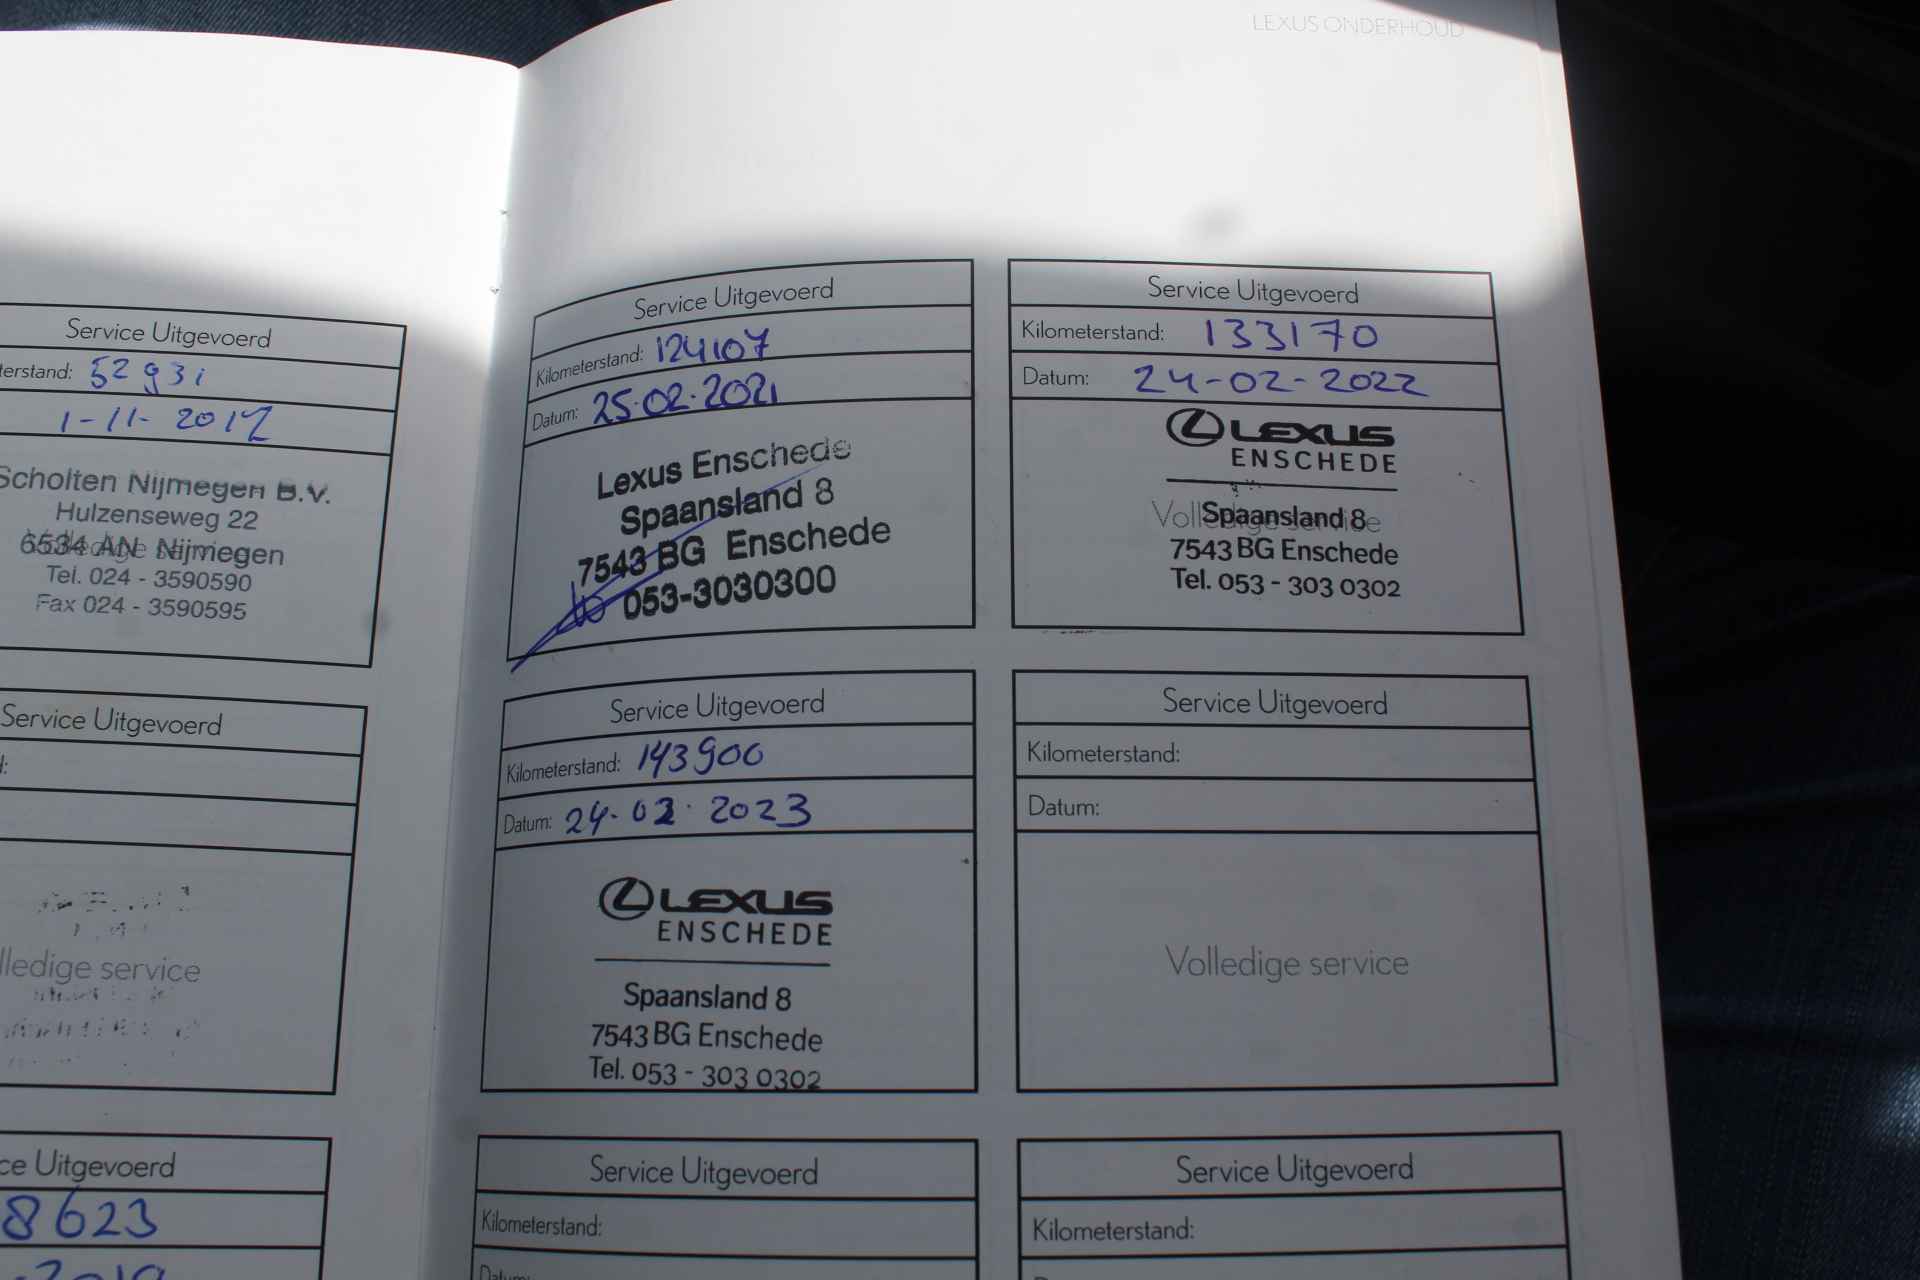 LEXUS ONDERHOUD
Service Uitgevoerd
terstand: 52931
1-11-2017
Scholten Nijmegen B.V.
Hulzenseweg 22
6534 AN Nijmegen
Tel. 024 - 3590590
Fax 024 - 3590595
Service Uitgevoerd
lledige service
ce Uitgevoerd
8623
-2019
Service Uitgevoerd
Kilometerstand: 124107
Datum: 25-02-2021
Lexus Enschede
Spaansland 8
7543 BG Enschede
053-3030300
Service Uitgevoerd
Kilometerstand: 133170
Datum: 24-02-2022
LEXUS
ENSCHEDE
Volledige service
Spaansland 8
7543 BG Enschede
Tel. 053 - 303 0302
Service Uitgevoerd
Kilometerstand: 143900
Datum: 24-02-2023
LEXUS
ENSCHEDE
Spaansland 8
7543 BG Enschede
Tel. 053 - 303 0302
Service Uitgevoerd
Kilometerstand:
Datum:
Volledige service
Service Uitgevoerd
Kilometerstand:
Datum:
Service Uitgevoerd
Kilometerstand: